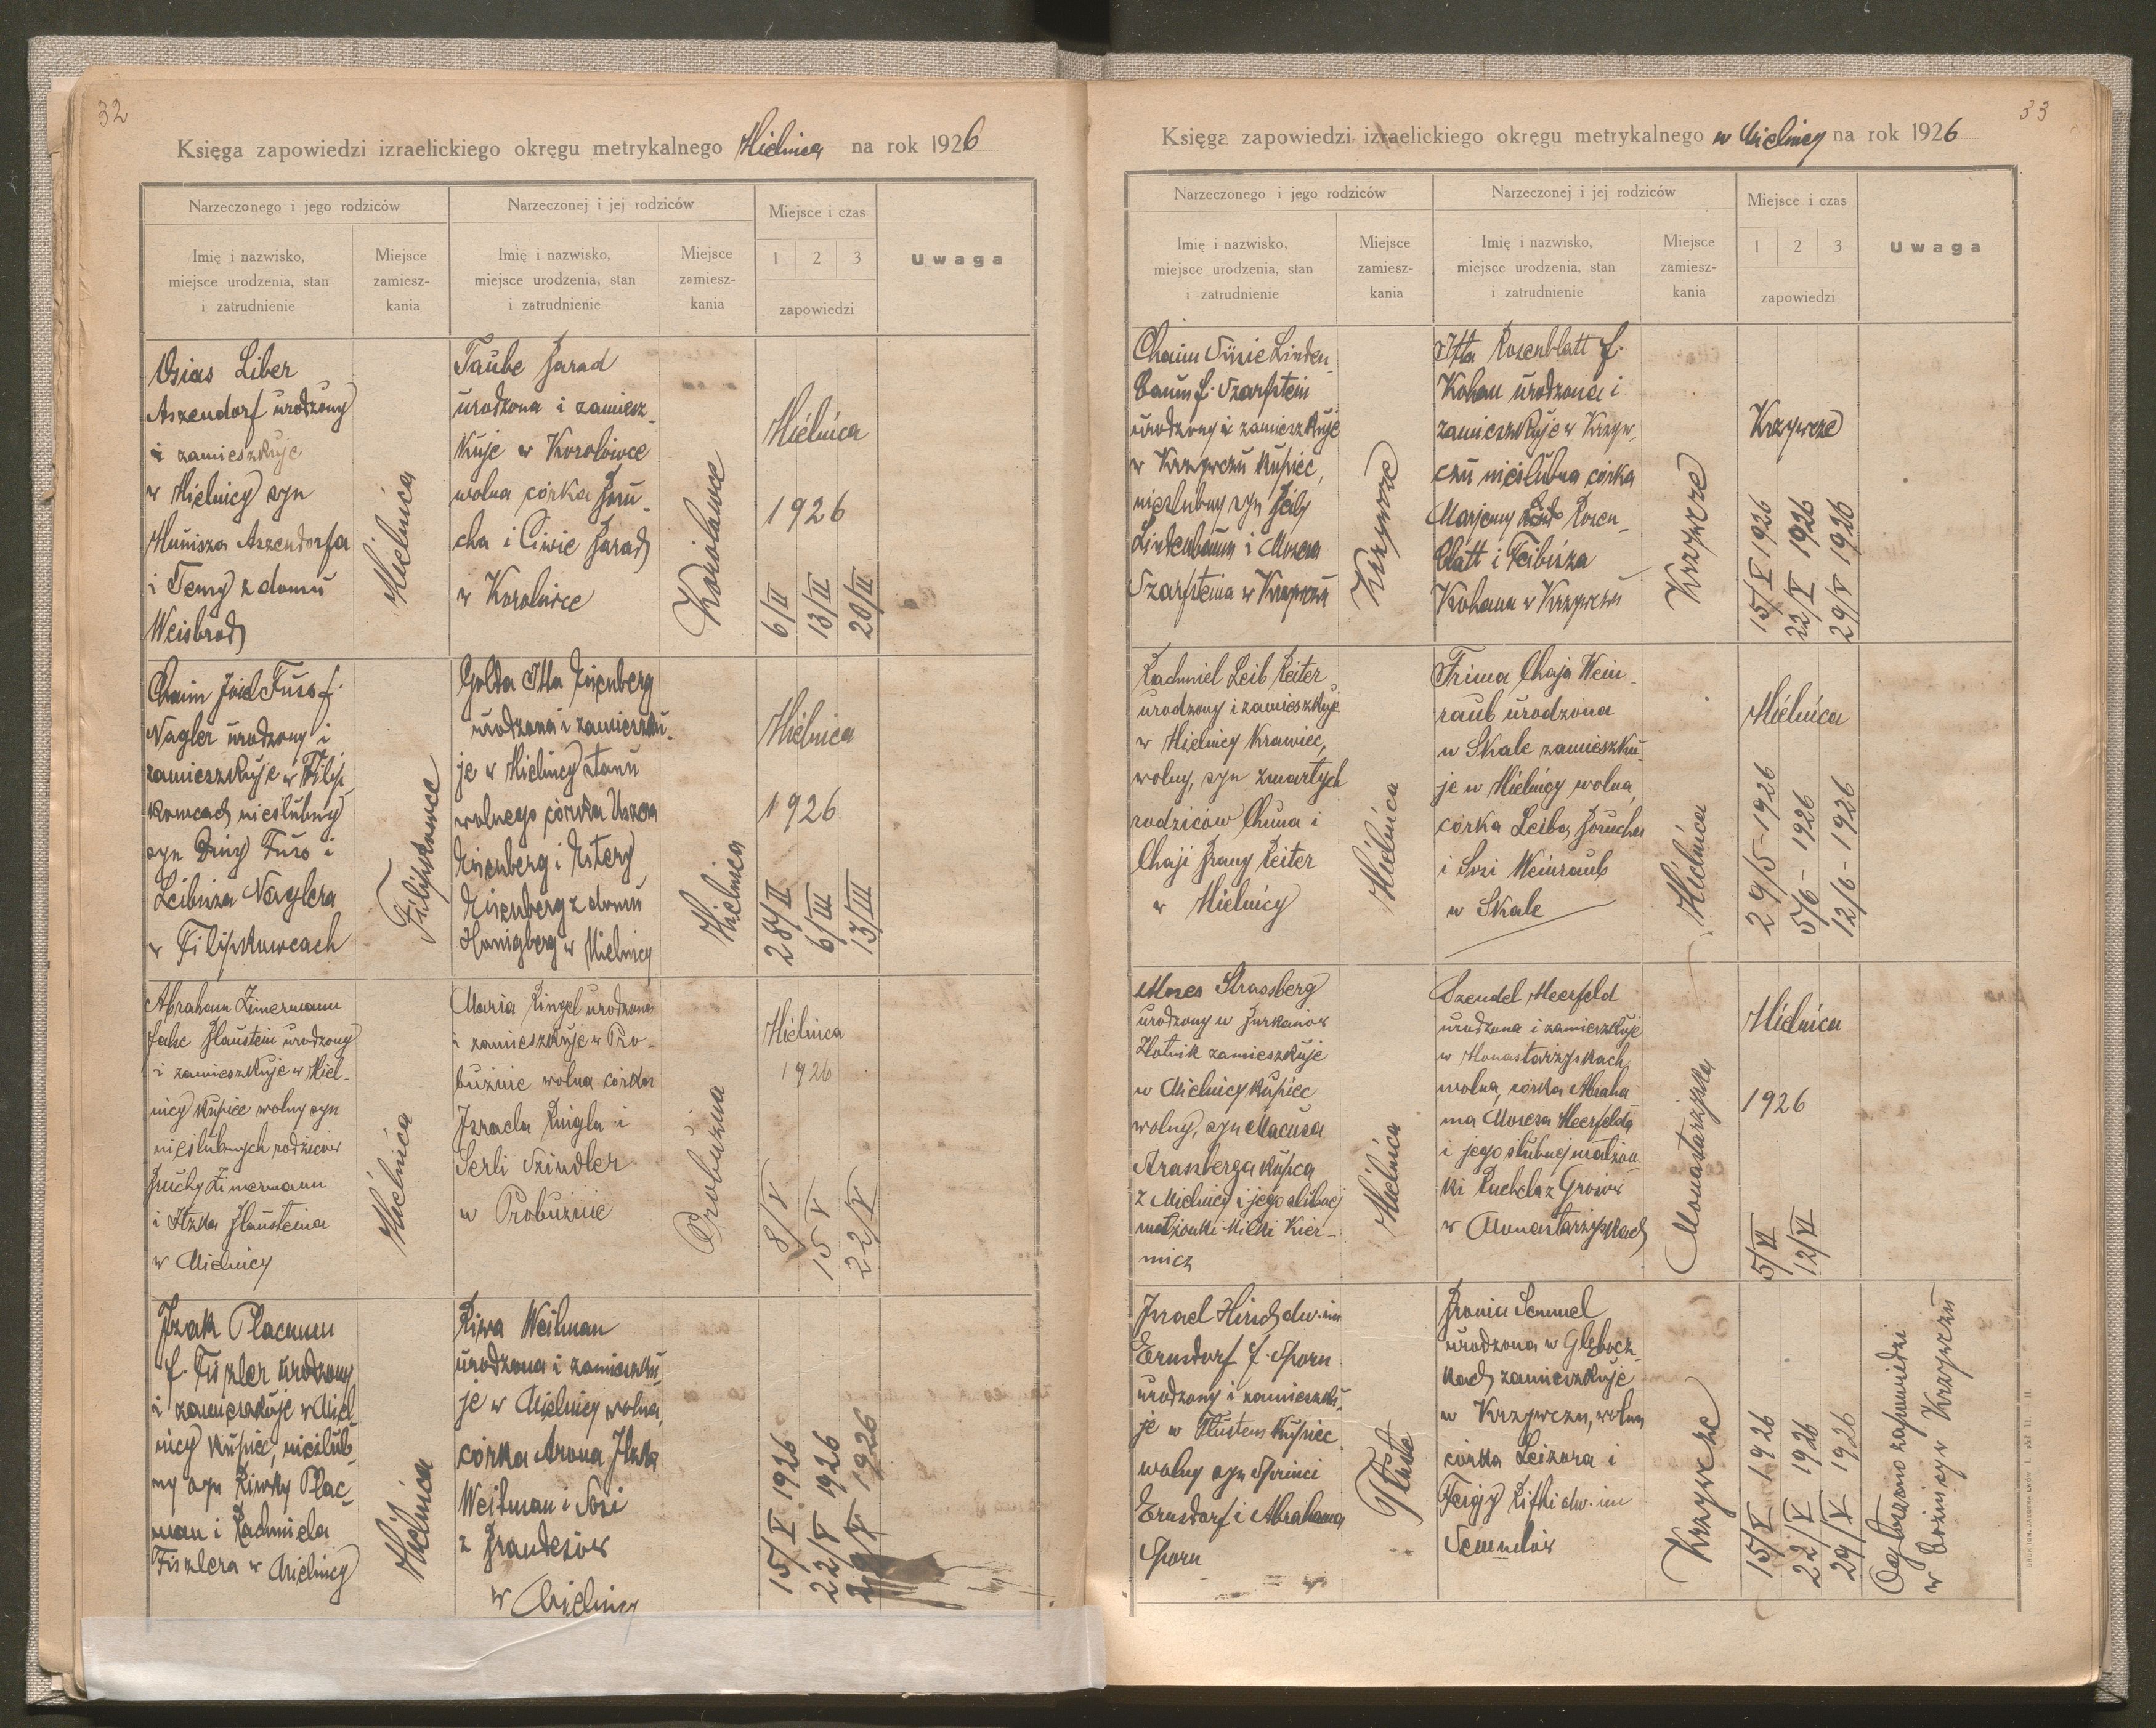 32
Księga zapowiedzi izraelickiego okręgu metrykalnego Mielnica na rok 1926
Narzeczonego i jego rodziców
Narzeczonej i jej rodziców
Miejsce i czas
Uwaga
Imię i nazwisko,
miejsce urodzenia, stan
i zatrudnienie
Miejsce
zamiesz-
kania
Imię i nazwisko,
miejsce urodzenia, stan
i zatrudnienie
Miejsce
zamiesz-
kania
1 2 3
zapowiedzi
Osias Liber
Aszendorf urodzony
i zamieszkuje
w Mielnicy syn
Munisza Aszendorfa
i Temy z domu
Weisbrod
Mielnica
Taube Barad
urodzona i zamiesz-
kuje w Korolówce
wolna córka Boru-
cha i Ciwie Barad
w Korolówce
Korolówka
Mielnica
1926
6/II
13/II
20/II
Chaim Joel Fuss f.
Nagler urodzony i
zamieszkuje w Filip-
kowcach nieślubny
syn Druy Fuss i
Leibisza Naglera
w Filipkowcach
Filipkowce
Golda Itta Eisenberg
urodzona i zamieszku-
je w Mielnicy stanu
wolnego córka Uszera
Eisenberg i Estery
Eisenberg z domu
Honigberg w Mielnicy
Mielnica
Mielnica
1926
28/II
6/III
13/III
Abraham Zimermann
false Blaustein urodzony
i zamieszkuje w Miel-
nicy kupiec wolny syn
nieślubnych rodziców
Bruchy Zimermann
i Itzka Blausteina
w Mielnicy
Mielnica
Maria Ringel urodzona
i zamieszkuje w Pro-
bużnie wolna córka
Izraela Ringla i
Serli Szindler
w Probużnie
Probużna
Mielnica
1926
8/V
15 V
22/V
Izak Placmann
f. Fiszler urodzony
i zamieszkuje w Miel-
nicy kupiec, nieślub-
ny syn Riwky Plac-
man i Rachmiela
Fiszlera w Mielnicy
Mielnica
Riwa Weitman
urodzona i zamieszku-
je w Mielnicy wolna,
córka Arona Itzka
Weitman i Sosi
z Brandesów
w Mielnicy
15/V 1926
22/V 1926
29/V 1926
33
Księga zapowiedzi izraelickiego okręgu metrykalnego w Mielnicy na rok 1926
Narzeczonego i jego rodziców
Narzeczonej i jej rodziców
Miejsce i czas
Uwaga
Imię i nazwisko,
miejsce urodzenia, stan
i zatrudnienie
Miejsce
zamiesz-
kania
Imię i nazwisko,
miejsce urodzenia, stan
i zatrudnienie
Miejsce
zamiesz-
kania
1 2 3
zapowiedzi
Chaim Süsie Linden-
baum f. Szarfstein
urodzony i zamieszkuje
w Krzywczu kupiec,
nieślubny syn Beily
Lindenbaum i Mosesa
Szarfsteina w Krzywczu
Krzywcze
Itta Rosenblatt f.
Kohan urodzona i
zamieszkuje w Krzyw-
czu nieślubna córka
Marjemy Rosen-
blatt i Feibisza
Kohana w Krzywczu
Krzywcze
Krzywcze
15/V 1926
22/V 1926
29/V 1926
Rachmiel Leib Reiter
urodzony i zamieszkuje
w Mielnicy krawiec,
wolny, syn zmarłych
rodziców Chuna i
Chaji Brany Reiter
w Mielnicy
Mielnica
Frima Chaja Wein-
raub urodzona
w Skale zamieszku-
je w Mielnicy wolna,
córka Leiba Borucha
i Sosi Weinraub
w Skale
Mielnica
Mielnica
29/5-1926
5/6-1926
12/6-1926
Moses Strassberg
urodzony w Burkanów
Złotnik zamieszkuje
w Mielnicy kupiec
wolny, syn Macusa
Strassberga kupca
z Mielnicy i jego ślubnej
małżonki Milki Kier-
nicz
Mielnica
Szendel Meerfeld
urodzona i zamieszkuje
w Monastarzyskach,
wolna, córka Abraha-
ma Mosesa Meerfelda
i jego ślubnej małżon-
ki Rachela z Grosów
w Monastarzyskach
Monastarzyska
Mielnica
1926
5/VI
12/VI
Izrael Hirsch dw. im
Ernsdorf f. Sporn
urodzony i zamieszku-
je w Tłustem kupiec
wolny syn Sprinci
Ernsdorf i Abrahama
Sporn
Tłuste
Bronia Semmel
urodzona w Głębocz-
kach zamieszkuje
w Krzywczu, wolna
córka Leizora i
Feigy Rifki dw. im
Semmlów
Krzywcze
15/V 1926
22/V 1926
29/V 1926
Ogłoszono zapowiedzi
w bóżnicy w Krzywczu